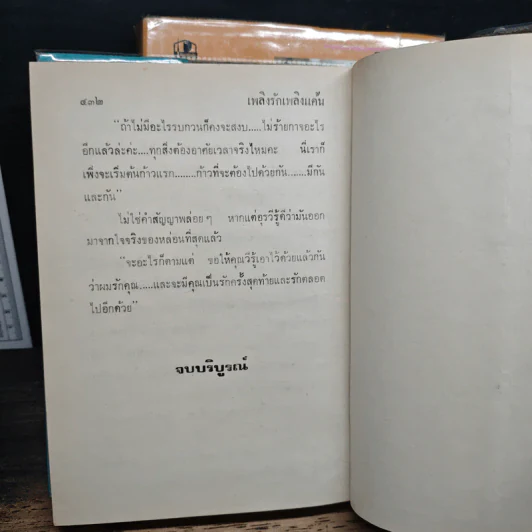 ๔๓๒ เพลิงรักเพลิงแค้น
"ถ้าไม่มีอะไรรบกวนก็คงจะสงบ.....ไม่ร้ายกาจอะไร
อีกแล้วล่ะค่ะ....ทุกสิ่งต้องอาศัยเวลาจริงไหมคะ นี่เราก็
เพิ่งจะเริ่มต้นก้าวแรก........ก้าวที่จะต้องไปด้วยกัน.......มีกัน
และกัน"
ไม่ใช่คำสัญญาพล่อยๆ หากแต่อุรวีรู้ดีว่ามันออก
มาจากใจจริงของหล่อนที่สุดแล้ว
"จะอะไรก็ตามแต่ ขอให้คุณวีรู้เอาไว้ด้วยแล้วกัน
ว่าผมรักคุณ.....และจะมีคุณเป็นรักครั้งสุดท้ายและรักตลอด
ไปอีกด้วย"
จบบริบูรณ์